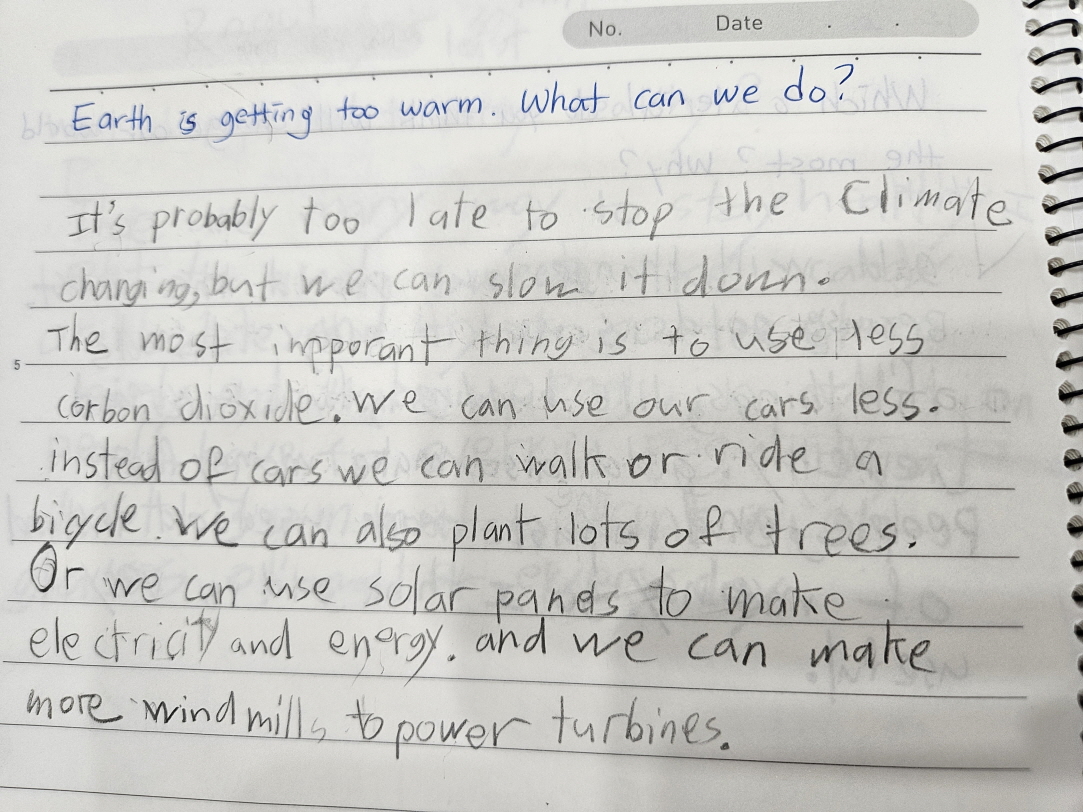 No. Date . .
Earth is getting too warm. What can we do?
It's probably too late to stop the Climate
changing, but we can slow it down.
The most impporant thing is to use less
5
corbon dioxide. We can use our cars less.
instead of cars we can walk or ride a
bicycle. We can also plant lots of trees.
Or we can use solar panels to make
electricity and energy. and we can make
more windmills to power turbines.